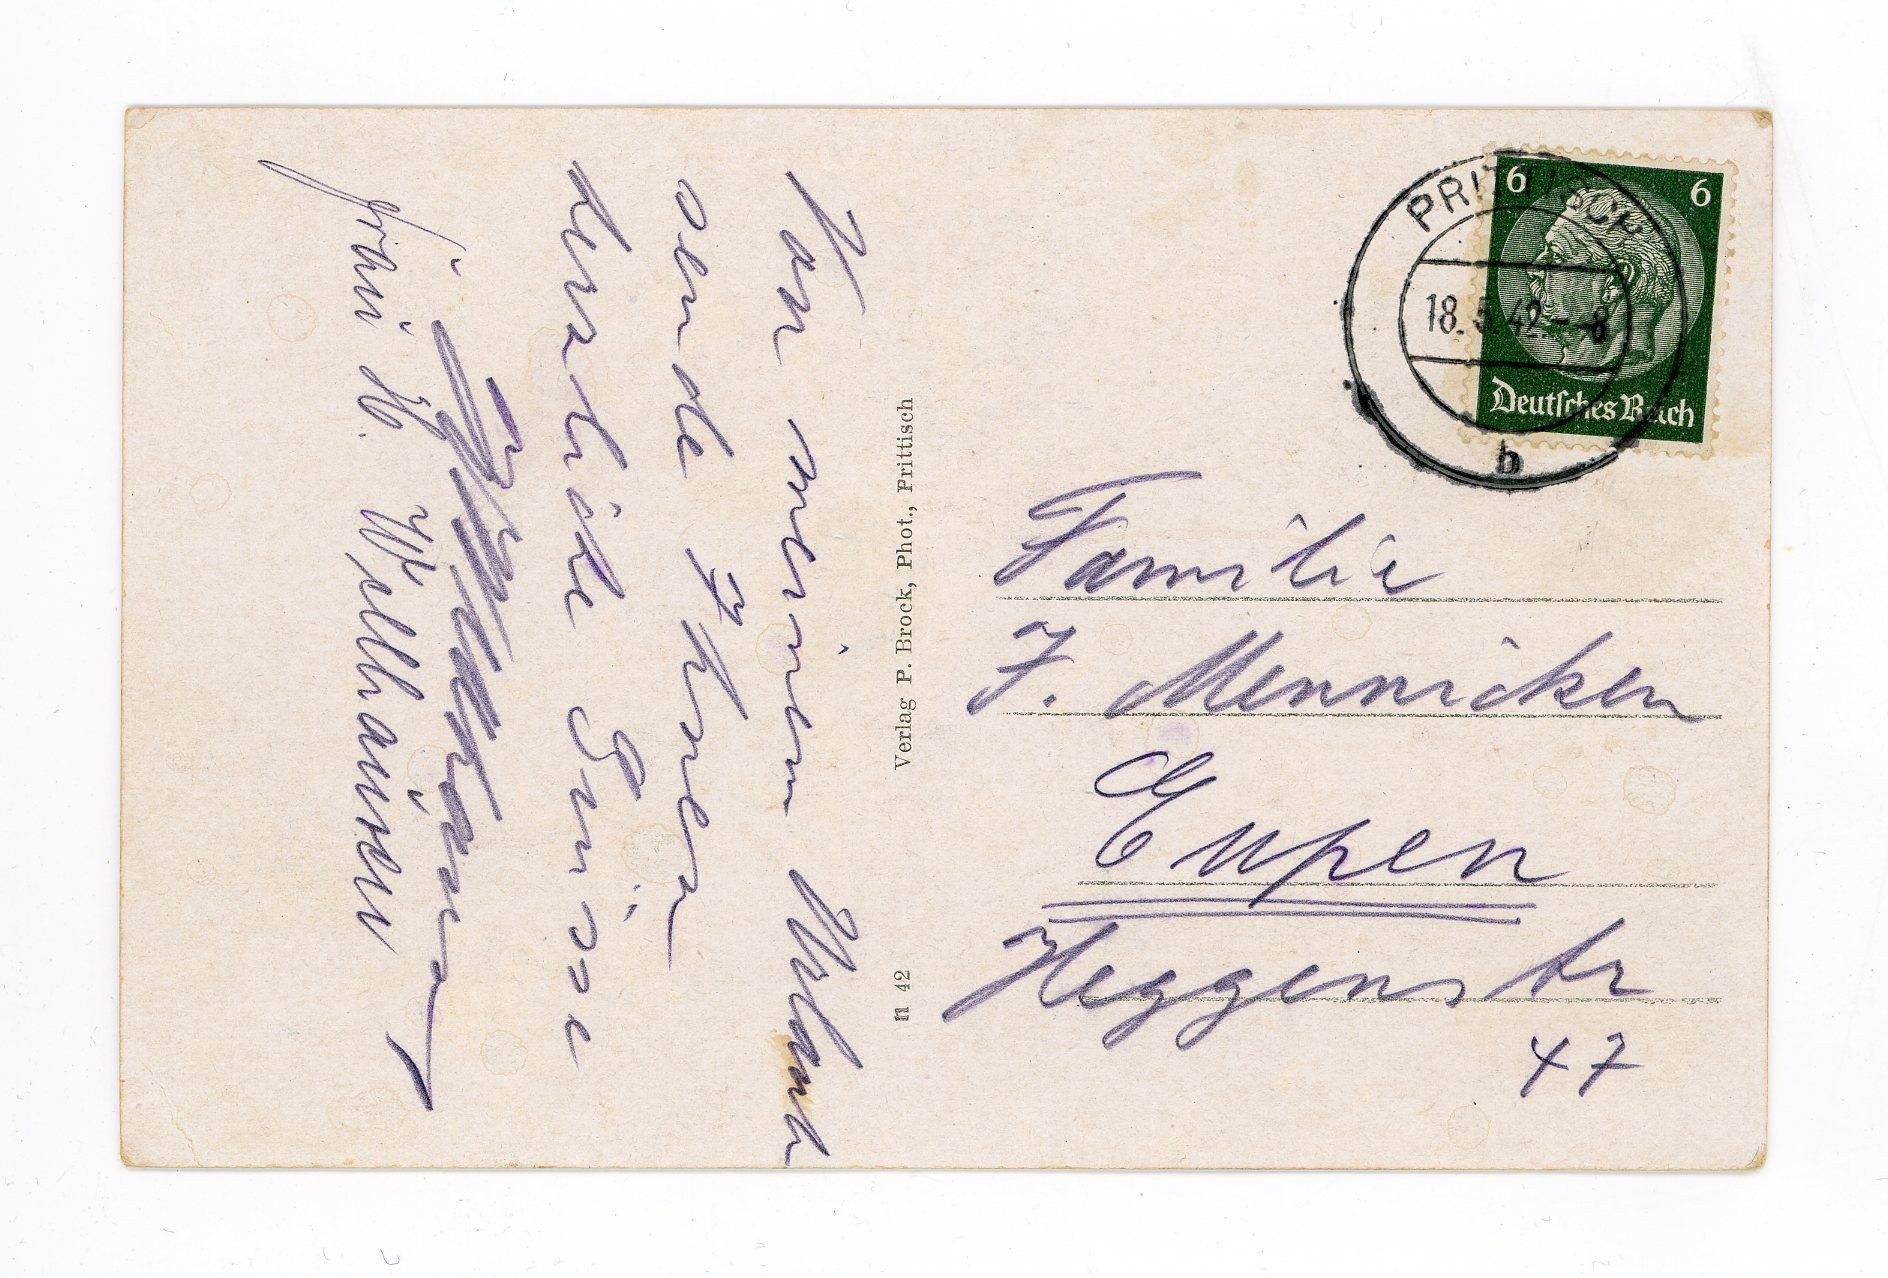 Von meinem Urlaub
sende Ihnen
herzliche Grüsse
Frau H. Wellhausen
Verlag P. Brock, Phot., Prittisch
n 42
6 6
Deutsches Reich
PRITTISCH
18.5.42.-8
b
Familie
J. Mennicken
Eupen
Heggenstr
47